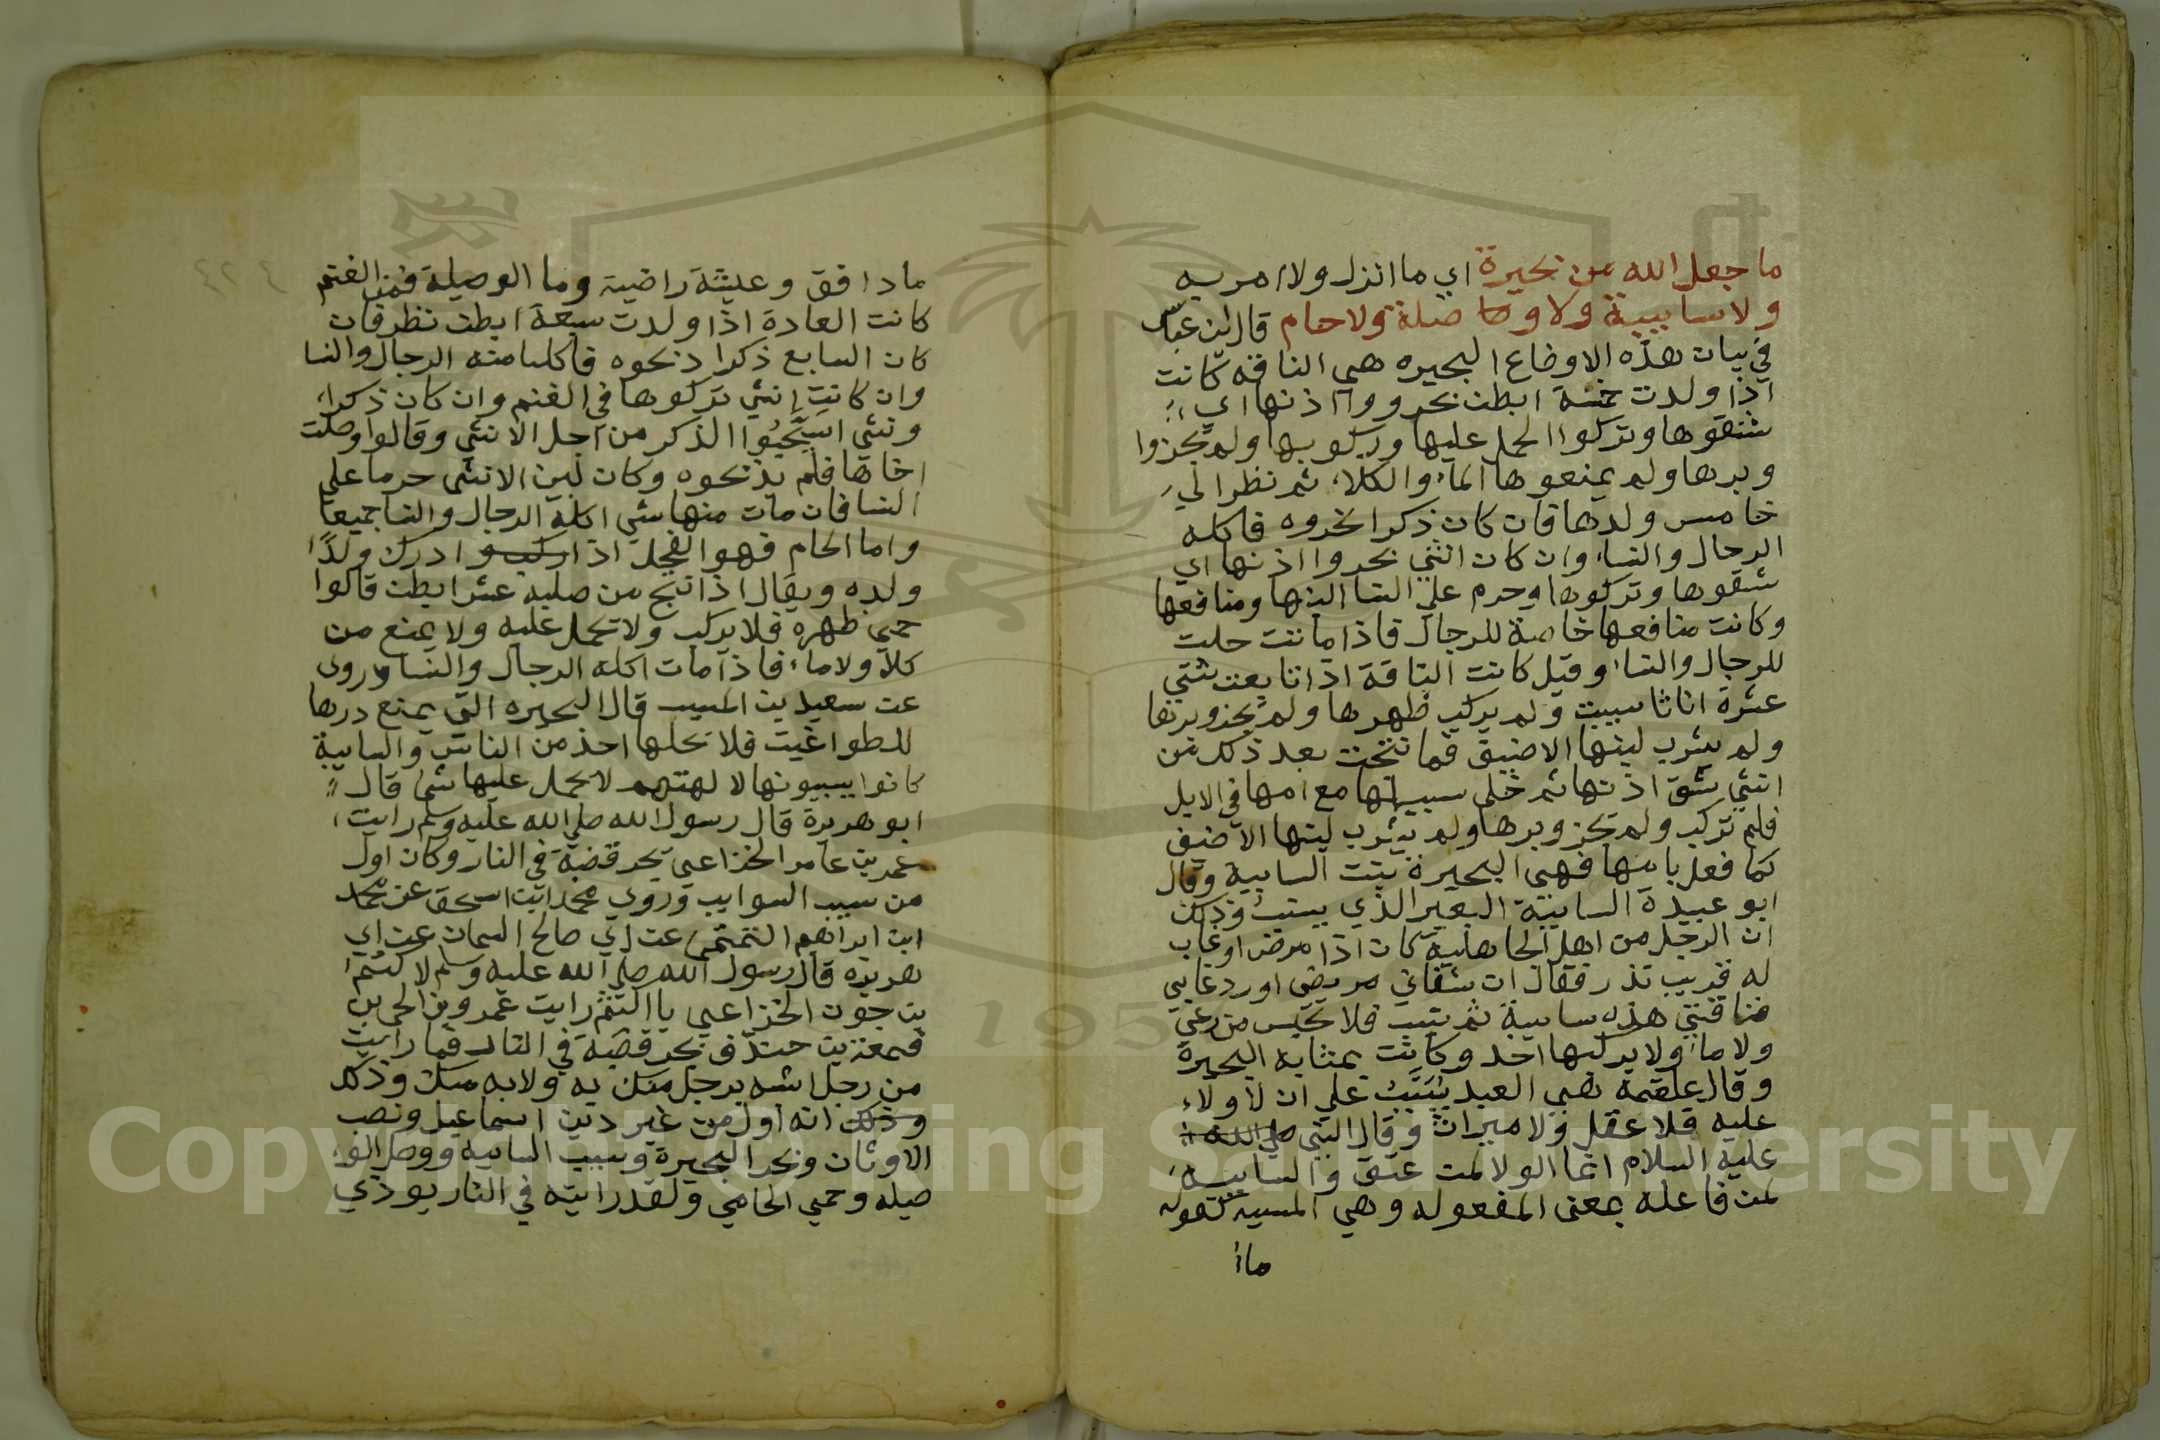 ما جعل الله من بحيرة اي ما انزل ولا امر به
ولا سايبة ولا وصا صلة ولا حام قال ابن عباس
في بيان هذه الاوضاع البحيره هي الناقه كانت
اذا ولدت خمسة ابطن بحروا اذنها اي
شقوها وتركوا الحمل عليها وركوبها ولم يجزوا
وبرها ولم يمنعوها الماء والكلاء ثم نظر الي
خامس ولدها فان كان ذكرا نحروه فاكله
الرجال والنساء وان كان انثي بحروا اذنها اي
شقوها وتركوها وحرم علي النسا لبنها ومنافعها
وكانت منافعها خاصة للرجال فاذا ماتت حلت
للرجال والنساء وقيل كانت الناقة اذا تابعت ثنتي
عشرة اناثا سيبت ولم يركب ظهرها ولم يجز وبرها
ولم يشرب لبنها الا ضيف فما نتجت بعد ذلك من
انثي شق اذنها ثم خلي سبيلها مع امها في الابل
فلم تركب ولم يجز وبرها ولم يشرب لبنها الا ضيف
كما فعل بامها فهي البحيرة بنت السايبة وقال
ابو عبيدة السايبة البعير الذي يسيب وذلك
ان الرجل من اهل الجاهلية كان اذا مرض او غاب
له قريب نذر فقال ان شفاني مريضي او رد غايبي
فناقتي هذه سايبة ثم يسيب فلا تحبس من رعي
ولا ماء ولا يركبها احد وكانت بمثابة البحيرة
وقال علقمة هي العبد يسيب علي ان لا ولاء
عليه فلا عقل ولا ميراث وقال النبي صلي الله
عليه السلام انما الولا لمن عتق والسايبة
لمن فاعله بمعني المفعوله وهي المسيبة كقوله
ماء
ما دافق وعيشة راضية وما الوصيلة فمن الغنم
كانت العادة اذا ولدت سبعة ابطن نظر فان
كان السابع ذكرا ذبحوه فاكل منه الرجال والنسا
وان كانت انثي تركوها في الغنم وان كان ذكرا
ونثي استحيوا الذكر من اجل الانثي وقالوا وصلت
اخاها فلم يذبحوه وكان لبن الانثي حرما علي
النسا فان مات منها شي اكله الرجال والنسا جميعا
واما الحام فهو الفحل اذا ركب و ادرك ولدا
ولده ويقال اذا نتج من صلبه عشر ابطن قالوا
حمي ظهره فلا يركب ولا يحمل عليه ولا يمنع من
كلا ولا ماء فاذا مات اكله الرجال والنسا وروي
عن سعيد بن المسيب قال البحيره التي يمنع درها
للطواغيت فلا يحلبها احد من الناس والسايبة
كانوا يسيبونها لالهتهم لا يحمل عليها شي قال
ابو هريرة قال رسول الله صلي الله عليه وسلم رايت
عمر بن عامر الخزاعي يجر قصبة في النار وكان اول
من سيب السوايب وروي محمد ابن اسحق عن محمد
ابن ابراهيم التمتمي عن ابي صالح السمان عن ابي
هريره قال رسول الله صلي الله عليه وسلم لاكثم
بن جون الخزاعي يا اكثم رايت عمرو بن لحي بن
قمعة بن خندف يجر قصبة في النار فما رايت
من رجل اشبه برجل منك به ولا به منك وذلك
وذلك انه اول من غير دين اسماعيل ونصب
الاوثان وبحر البحيرة وسيب السايبه ووصل الو
صيله وحمي الحامي ولقد رايته في النار يوذي
Copyright © King Saud University
195